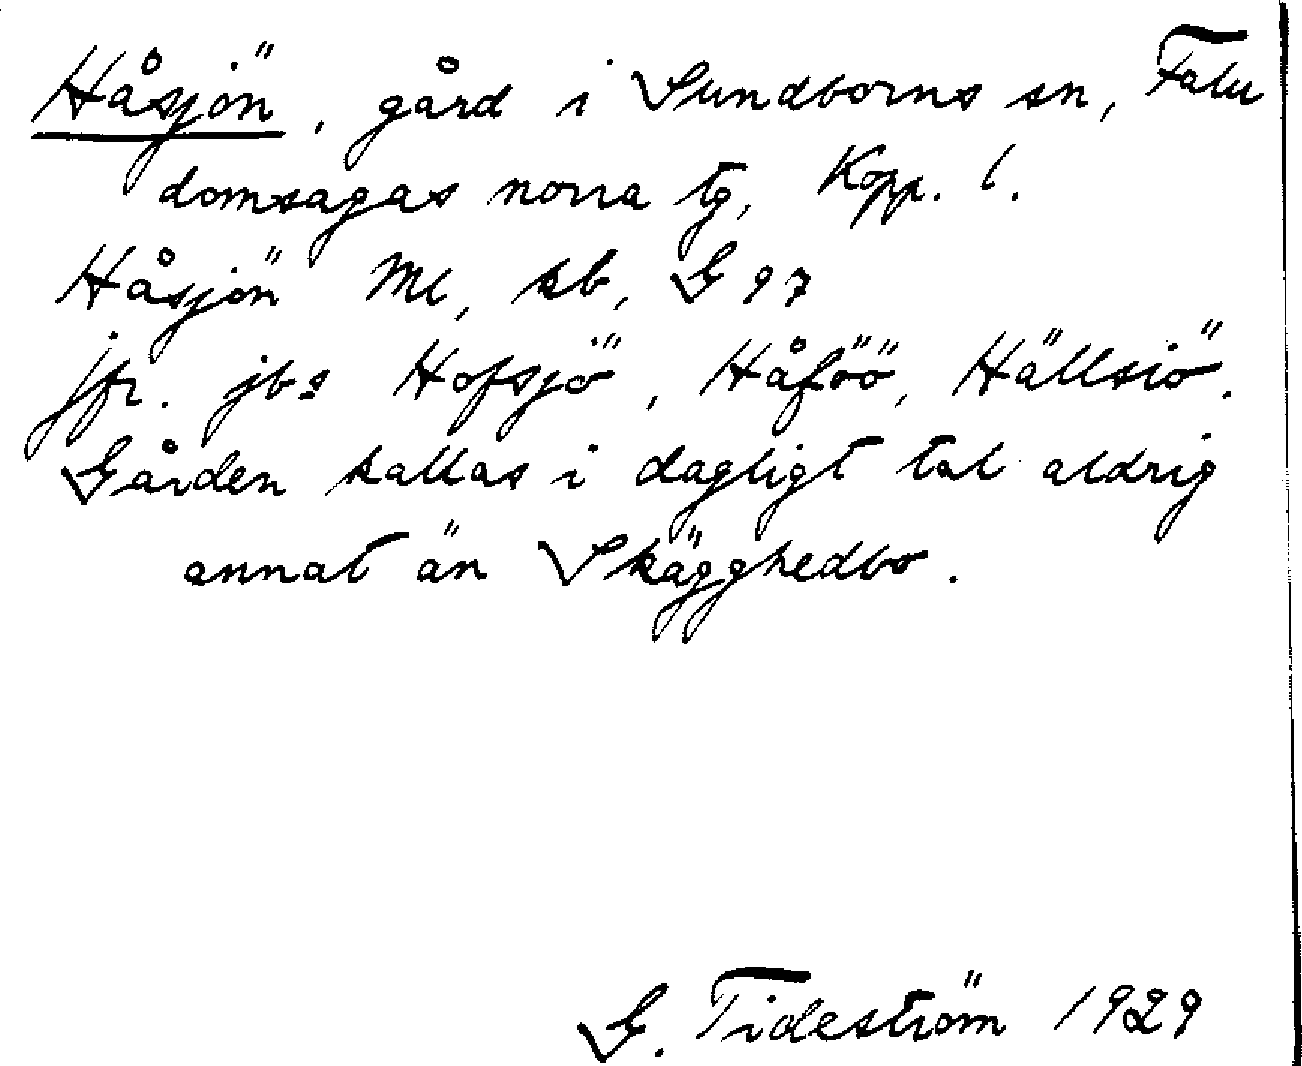 Håsjön, gård i Sundborns sn, Falu
domsagas norra tg, Kopp. l.
Håsjön Ml, sb, G 97
jfr. jbs Hofsjö, Håföö, Hällsiö.
Gården kallas i dagligt tal aldrig
annat än Skägghedbo.
G. Tideström 1929